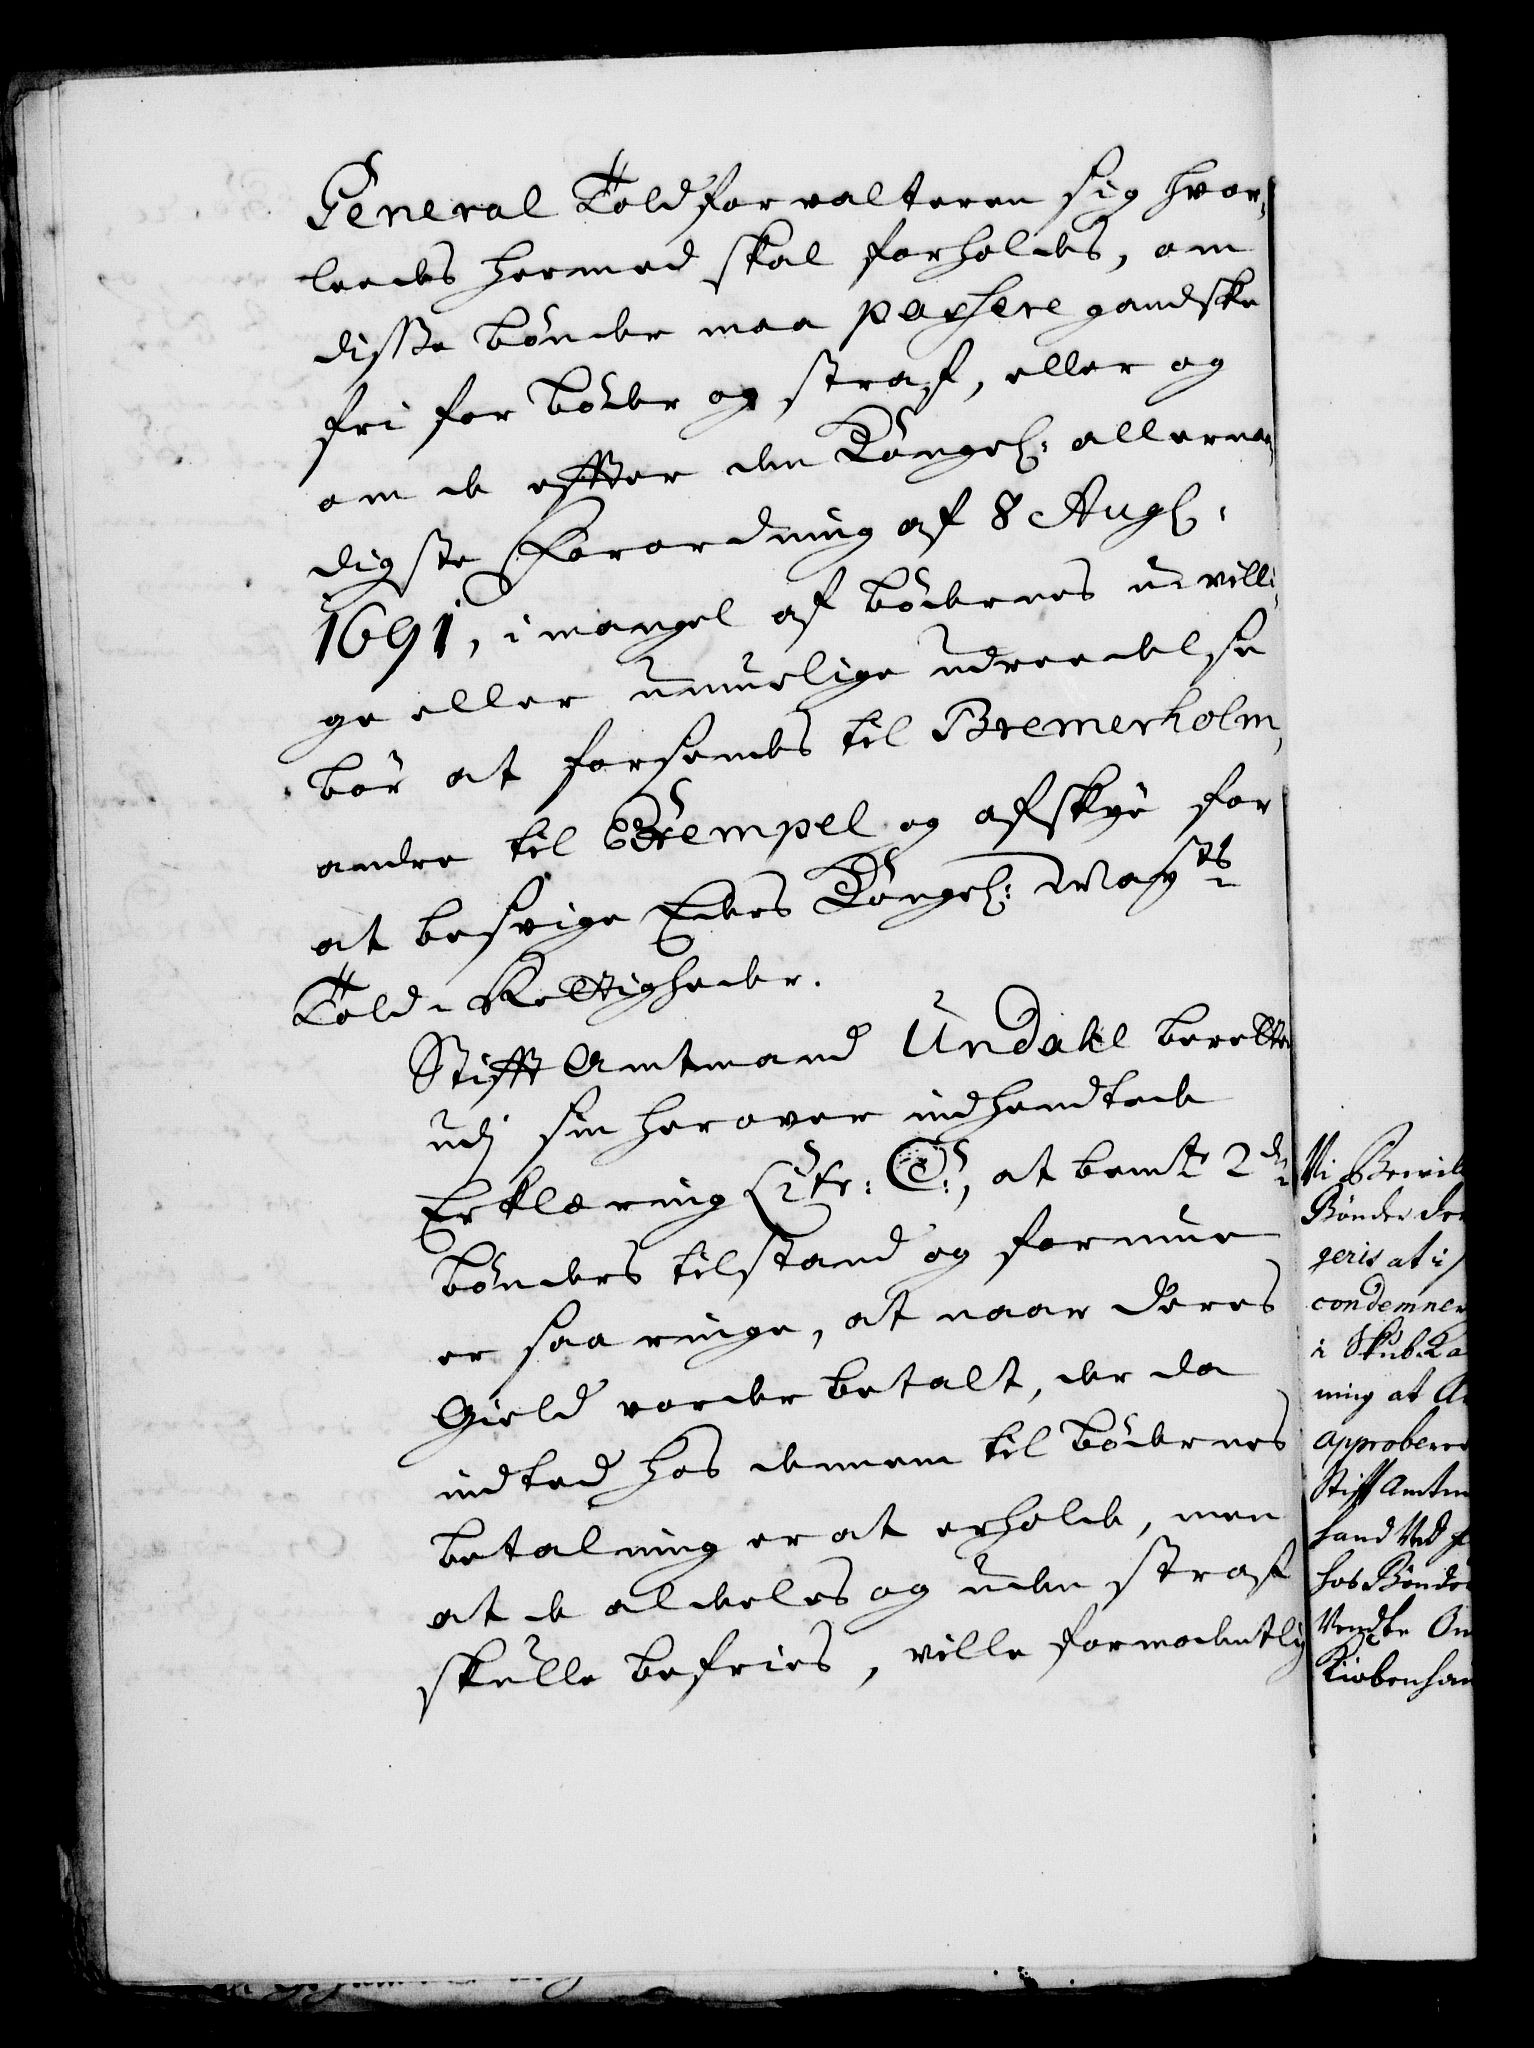 General Toldforvalteren sig hvor,
leedes hermed skal forholdes, om
disse bönder maa passere gandske
fri for böder og straf, eller og
om de effter den Kongel: allernaa,
digste Forordning af 8 Aug:
1691, i mangel af bödernes uvilli,
ge eller umuelige udreedelse
bör at forsendes til Bremerholm,
andre til Exempel og afskye for
at besvige Eders Kongel: Mayts
Told-Rettigheder.
Stifft Amtmand Undahl beretter
udj sin herover indhendtede
Erklæring Litr: C:, at bemte 2de
bönders tilstand og formue
er saa ringe, at naar deres
Gield vorder betalt, der da
indted hos dennem til bödernes
betalning er at erholde, men
at de aldeles og uden straf
skulle befries, ville formodentlig
Vi Bevil
Bönder der
geris at i
condemner
i Skub-Ka
ning at An
approberer
Stifft Amtm
hand Ved
hos Bönder
Kiobenhav